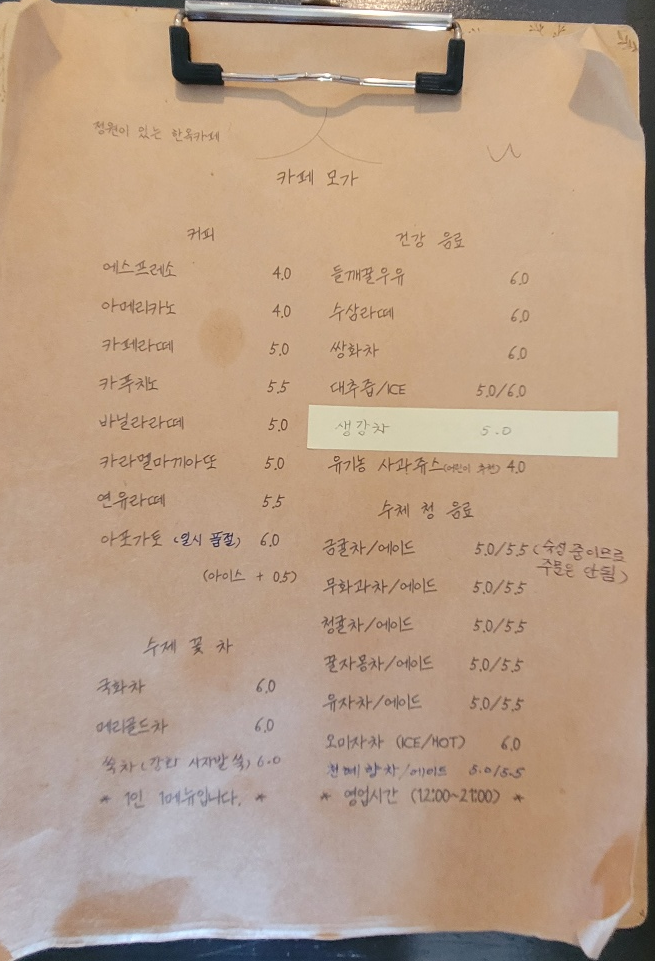 정원이 있는 한옥카페
카페 모가
커피
에스프레소 4.0
아메리카노 4.0
카페라떼 5.0
카푸치노 5.5
바닐라라떼 5.0
카라멜마끼아또 5.0
연유라떼 5.5
아포가토 (일시 품절) 6.0
(아이스 + 0.5)
수제 꽃 차
국화차 6.0
메리골드차 6.0
쑥차 (강화 사자발 쑥) 6.0
* 1인 1메뉴입니다. *
건강 음료
들깨꿀우유 6.0
수삼라떼 6.0
쌍화차 6.0
대추즙/ICE 5.0/6.0
생강차 5.0
유기농 사과쥬스(어린이 추천) 4.0
수제 청 음료
금귤차/에이드 5.0/5.5 (숙성 중이므로
주문은 안됨)
무화과차/에이드 5.0/5.5
청귤차/에이드 5.0/5.5
꿀자몽차/에이드 5.0/5.5
유자차/에이드 5.0/5.5
오미자차 (ICE/HOT) 6.0
천혜향차/에이드 5.0/5.5
* 영업시간 (12:00~21:00) *